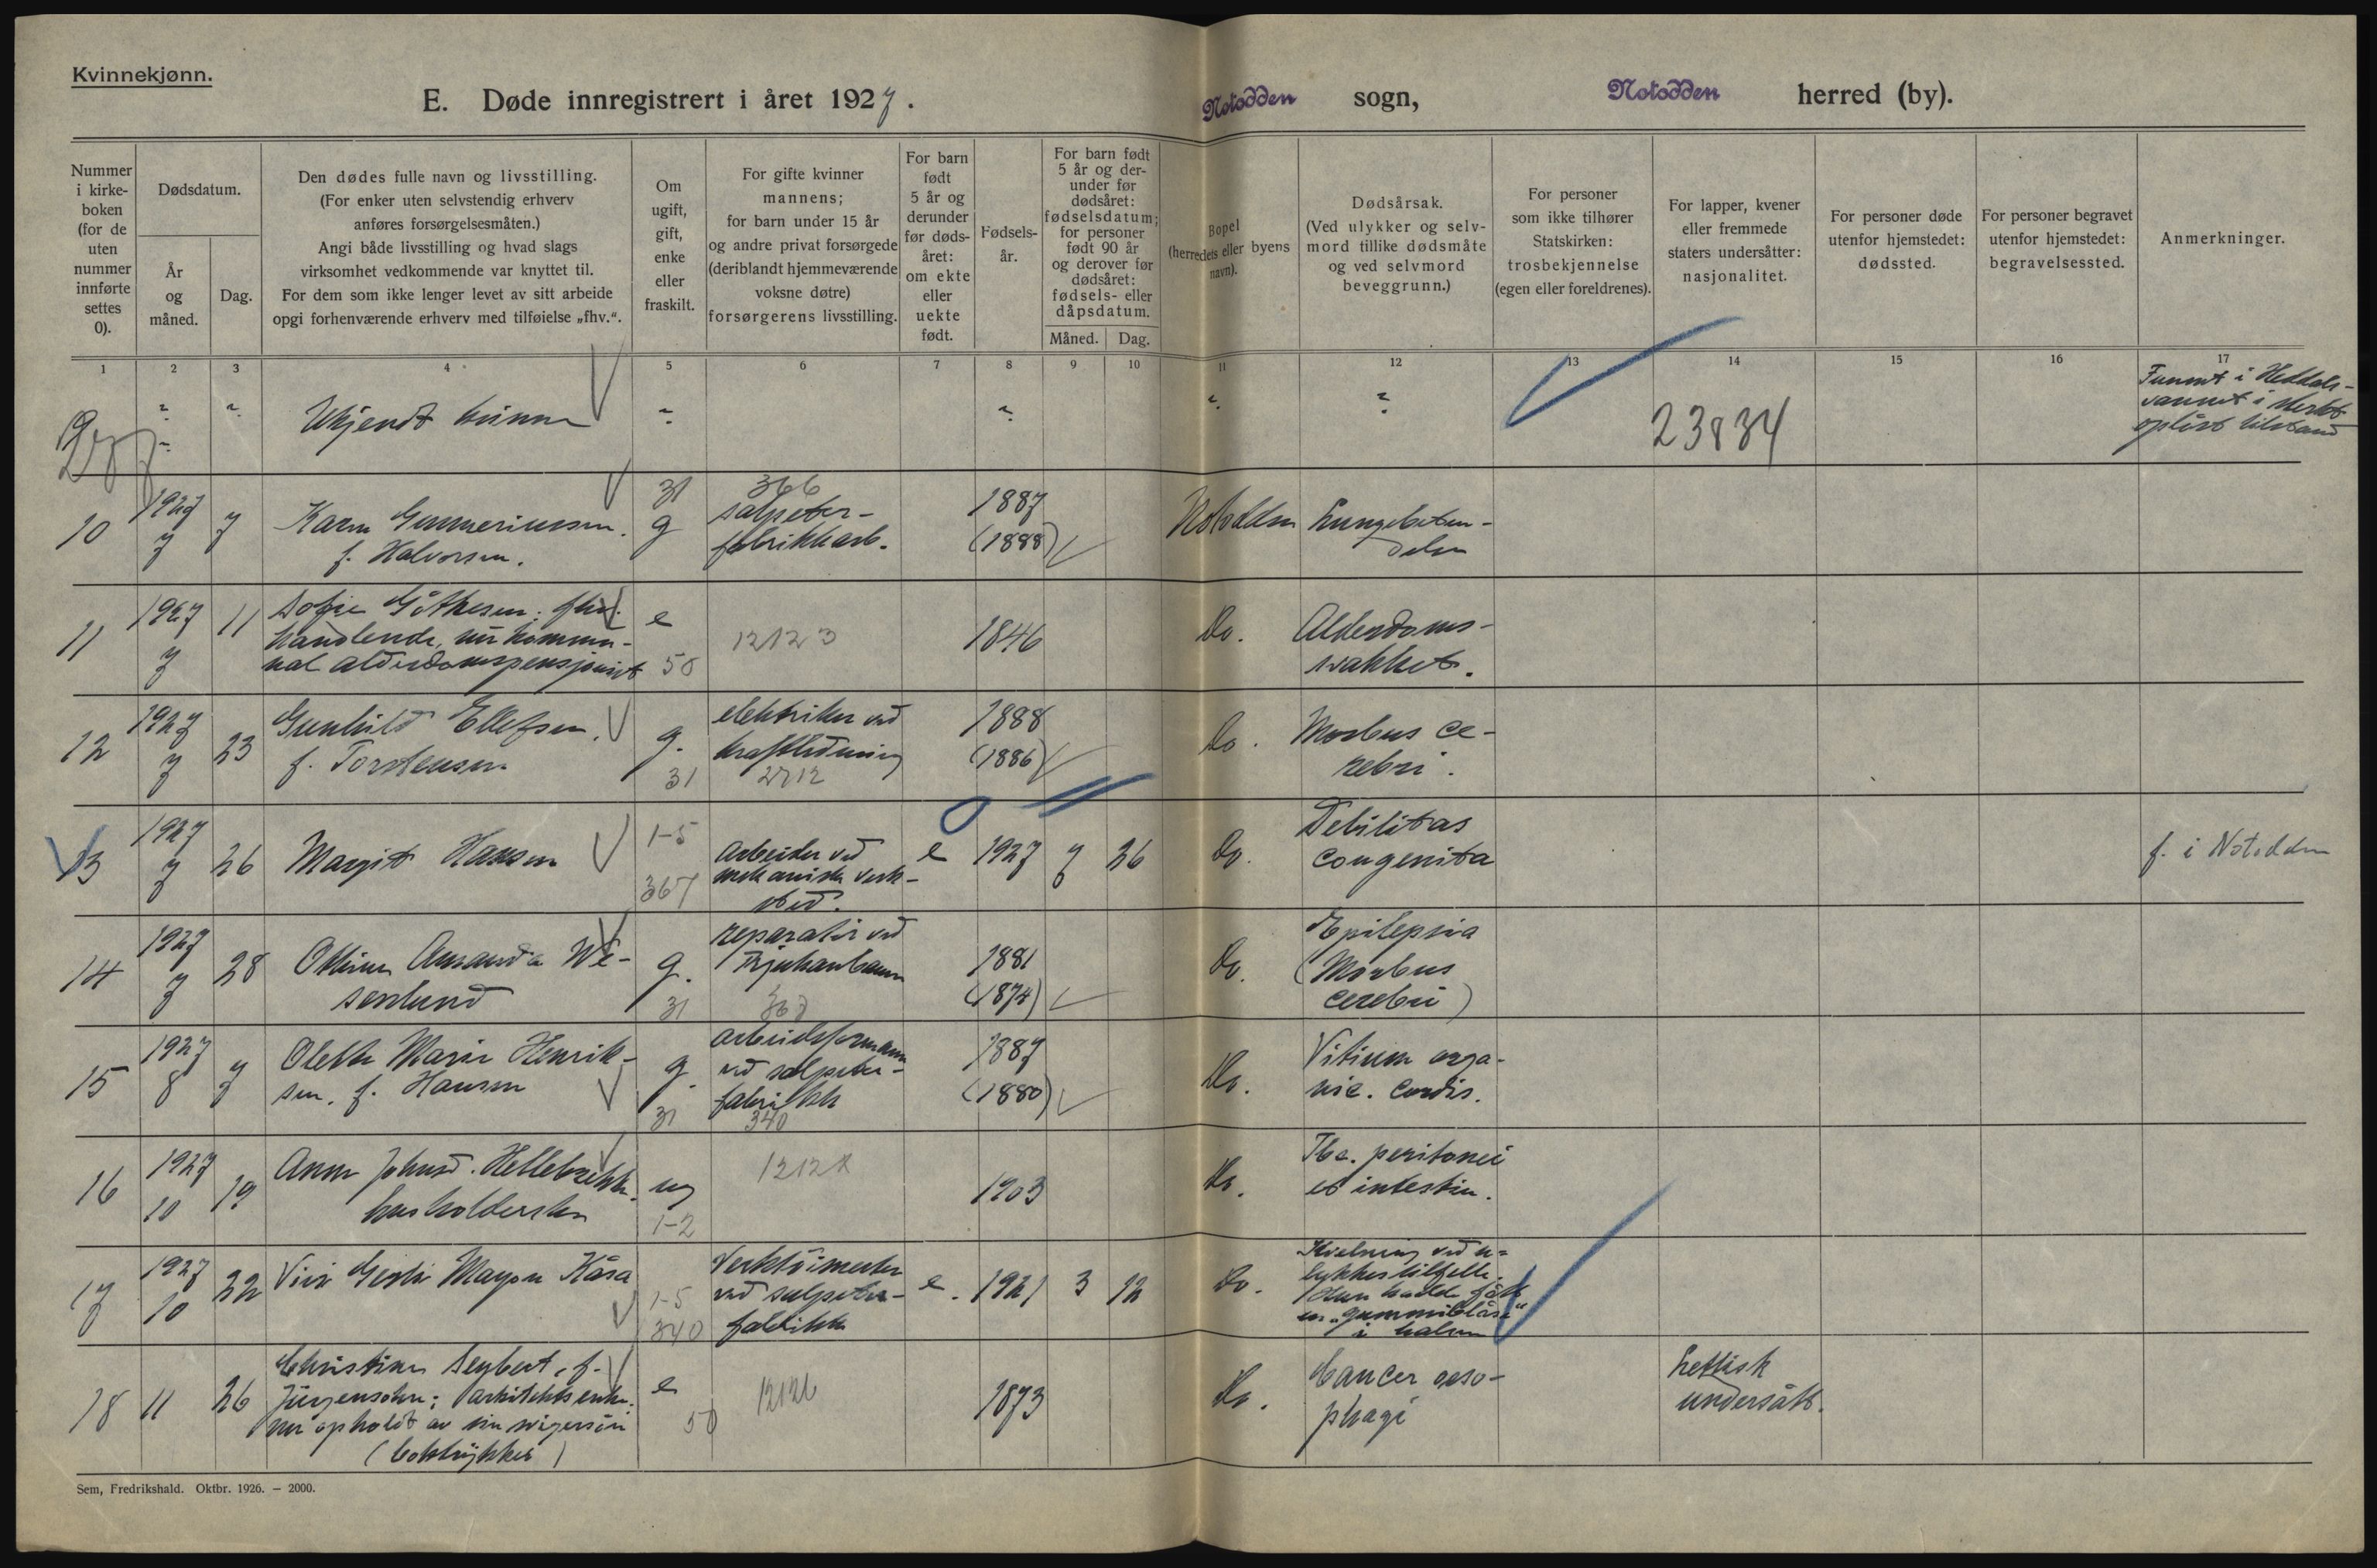 Kvinnekjønn.
E. Døde innregistrert i året 1927.
Notodden sogn, Notodden herred (by).
Nummer i kirke-boken (for de uten nummer innførte settes 0).
Dødsdatum.
År og måned.
Dag.
Den dødes fulle navn og livsstilling.
(For enker uten selvstendig erhverv anføres forsørgelsesmåten.)
Angi både livsstilling og hvad slags virksomhet vedkommende var knyttet til.
For dem som ikke lenger levet av sitt arbeide opgi forhenværende erhverv med tilføielse „fhv.“.
Om ugift, gift, enke eller fraskilt.
For gifte kvinner mannens;
for barn under 15 år og andre privat forsørgede (deriblandt hjemmeværende voksne døtre) forsørgerens livsstilling.
For barn født 5 år og derunder før døds-året: om ekte eller uekte født.
Fødsels-år.
For barn født 5 år og der-under før dødsåret: fødselsdatum; for personer født 90 år og derover før dødsåret: fødsels- eller dåpsdatum.
Måned. Dag.
Bopel (herredets eller byens navn).
Dødsårsak.
(Ved ulykker og selv-mord tillike dødsmåte og ved selvmord beveggrunn.)
For personer som ikke tilhører Statskirken: trosbekjennelse (egen eller foreldrenes).
For lapper, kvener eller fremmede staters undersåtter: nasjonalitet.
For personer døde utenfor hjemstedet: dødssted.
For personer begravet utenfor hjemstedet: begravelsessted.
Anmerkninger.
1 2 3 4 5 6 7 8 9 10 11 12 13 14 15 16 17
? ? Ukjendt kvinne ? ? ? ? 23834
Funnet i Heddals-
vannet i sterkt
opløst tilstand
10 1927 7 7 Karen Gunneriussen.
f. Halvorsen.
31 g
366
salpeter-
fabrikkarb.
1887
(1888)
Notodden
Lungebeten-
delse
11 1927 7 11
Sofie Gåthesen; fhv.
handlende, nu kommu-
nal alderdomspensjonist
e 50 12123 1846 Do.
Alderdoms-
svakhet.
12 1927 7 23
Gunhild Ellefsen,
f. Torstensen
g. 31
elektriker ved
kraftledning
2712
1888
(1886)
Do.
Morbus ce-
rebri.
13 1927 7 26 Margit Hansen
1-5
367
Arbeider ved
mekanisk verk-
sted.
e 1927 7 26 Do.
Debilitas
congenita
f. i Notodden
14 1927 7 28
Othine Amanda We-
senlund
g. 31
reparatør ved
Rjukanbanen
367
1881
(1874)
Do.
Epilepsia
(Morbus
cerebri)
15 1927 8 7
Olette Marie Henrik-
sen, f. Hansen
g. 31
arbeidsformann
ved salpeter-
fabrikk
340
1887
(1880)
Do.
Vitium orga-
nic. cordis.
16 1927 10 19
Anne Johnsd. Hellebrekke.
husholderske
ug 1-2
1903 Do.
Tbc. peritonei
et intestin.
17 1927 10 22
1-5
340
Verktøimester
ved salpeter-
fabrikk
e. 1921 3 12 Do.
Kvelning ved u-
lykkestilfelle.
Hun hadde fått
en „gummiblåse“
i halsen
18 11 26
Christine Seybert, f.
Jürgensohn; arkitektsenke.
nu opholdt av sin svigersøn
(boktrykker)
e 50 1873 Do.
Cancer oeso-
phagi
Lettisk
undersått.
Sem, Fredrikshald. Oktbr. 1926. — 2000.